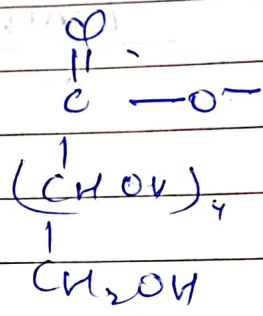 O
||
C — O⁻
|
(CHOH)₄
|
CH₂OH